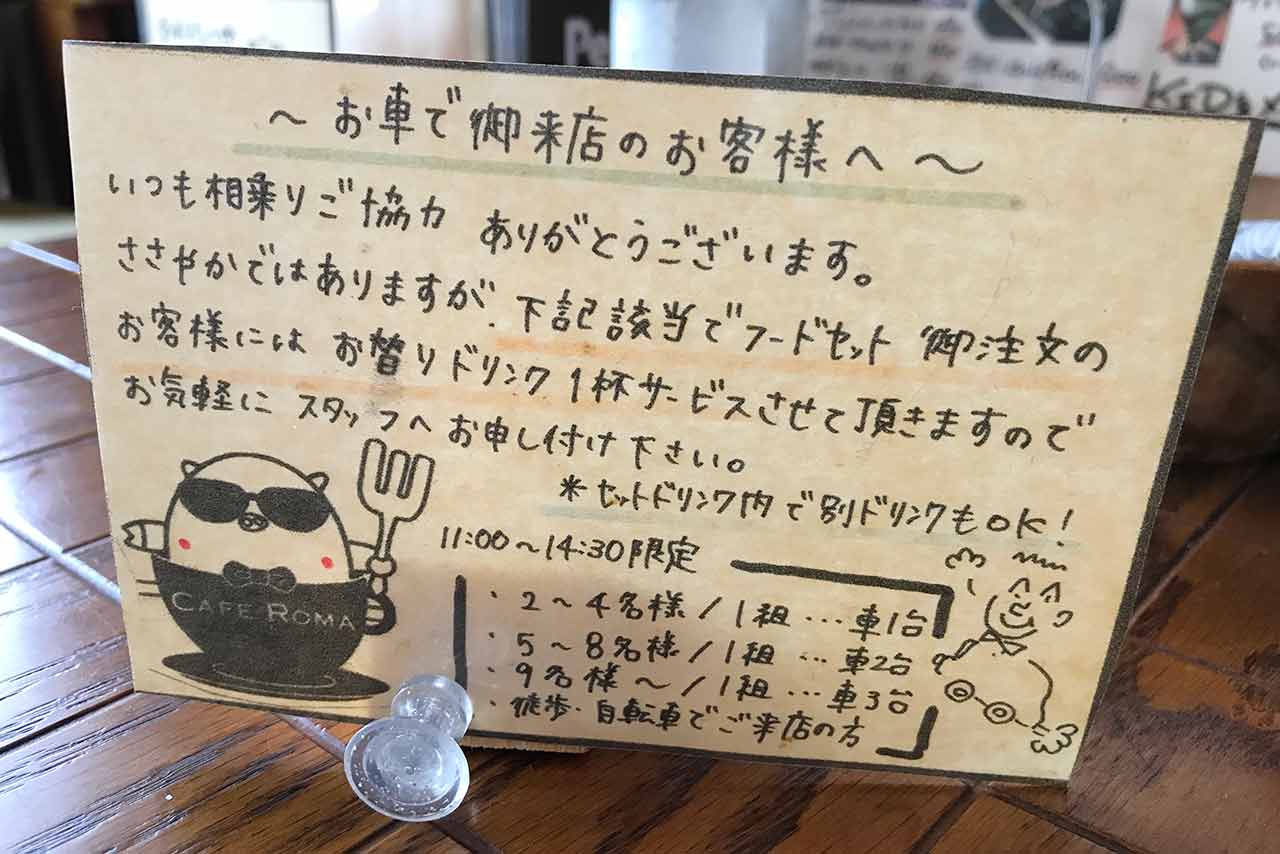 ～お車で御来店のお客様へ～
いつも相乗りご協力 ありがとうございます。
ささやかではありますが、下記該当でフードセット 御注文の
お客様には お替りドリンク1杯サービスさせて頂きますので
お気軽に スタッフへ お申し付け下さい。
＊セットドリンク内で別ドリンクもOK!
11:00～14:30限定
・2～4名様/1組…車1台
・5～8名様/1組…車2台
・9名様～/1組…車3台
・徒歩・自転車でご来店の方
CAFE ROMA
KIDS